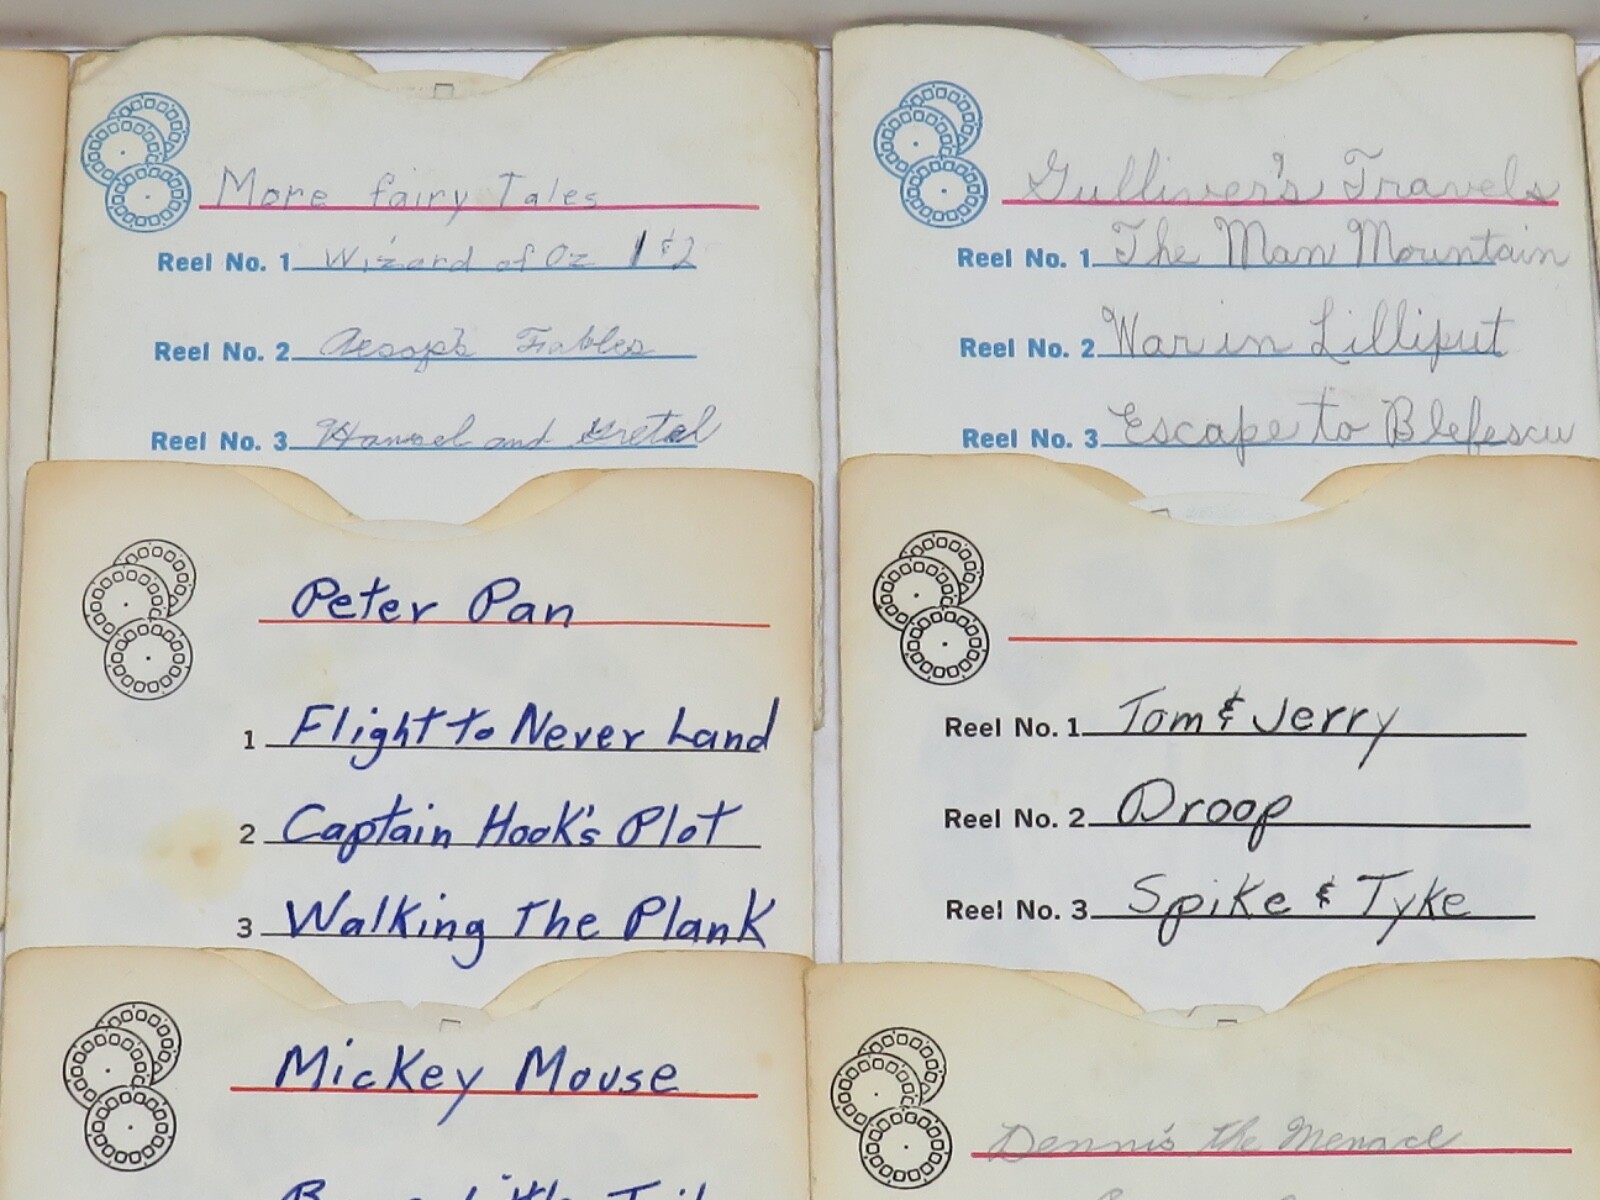 More fairy Tales
Reel No. 1 Wizard of Oz 1 & 2
Reel No. 2 Aesop's Fables
Reel No. 3 Hansel and Gretel
Gulliver's Travels
Reel No. 1 The Man Mountain
Reel No. 2 War in Lilliput
Reel No. 3 Escape to Blefescu
Peter Pan
1 Flight to Never Land
2 Captain Hook's Plot
3 Walking The Plank
Reel No. 1 Tom & Jerry
Reel No. 2 Droop
Reel No. 3 Spike & Tyke
Mickey Mouse
Dennis the Menace